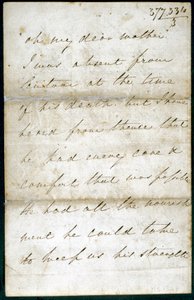 377.331
5
oh my dear mother
I was absent from
at the time
of his death but I have
heard from thence that
he had every care &
comfort that was possible
He had all the nourish
ment he could take
to keep up his strength